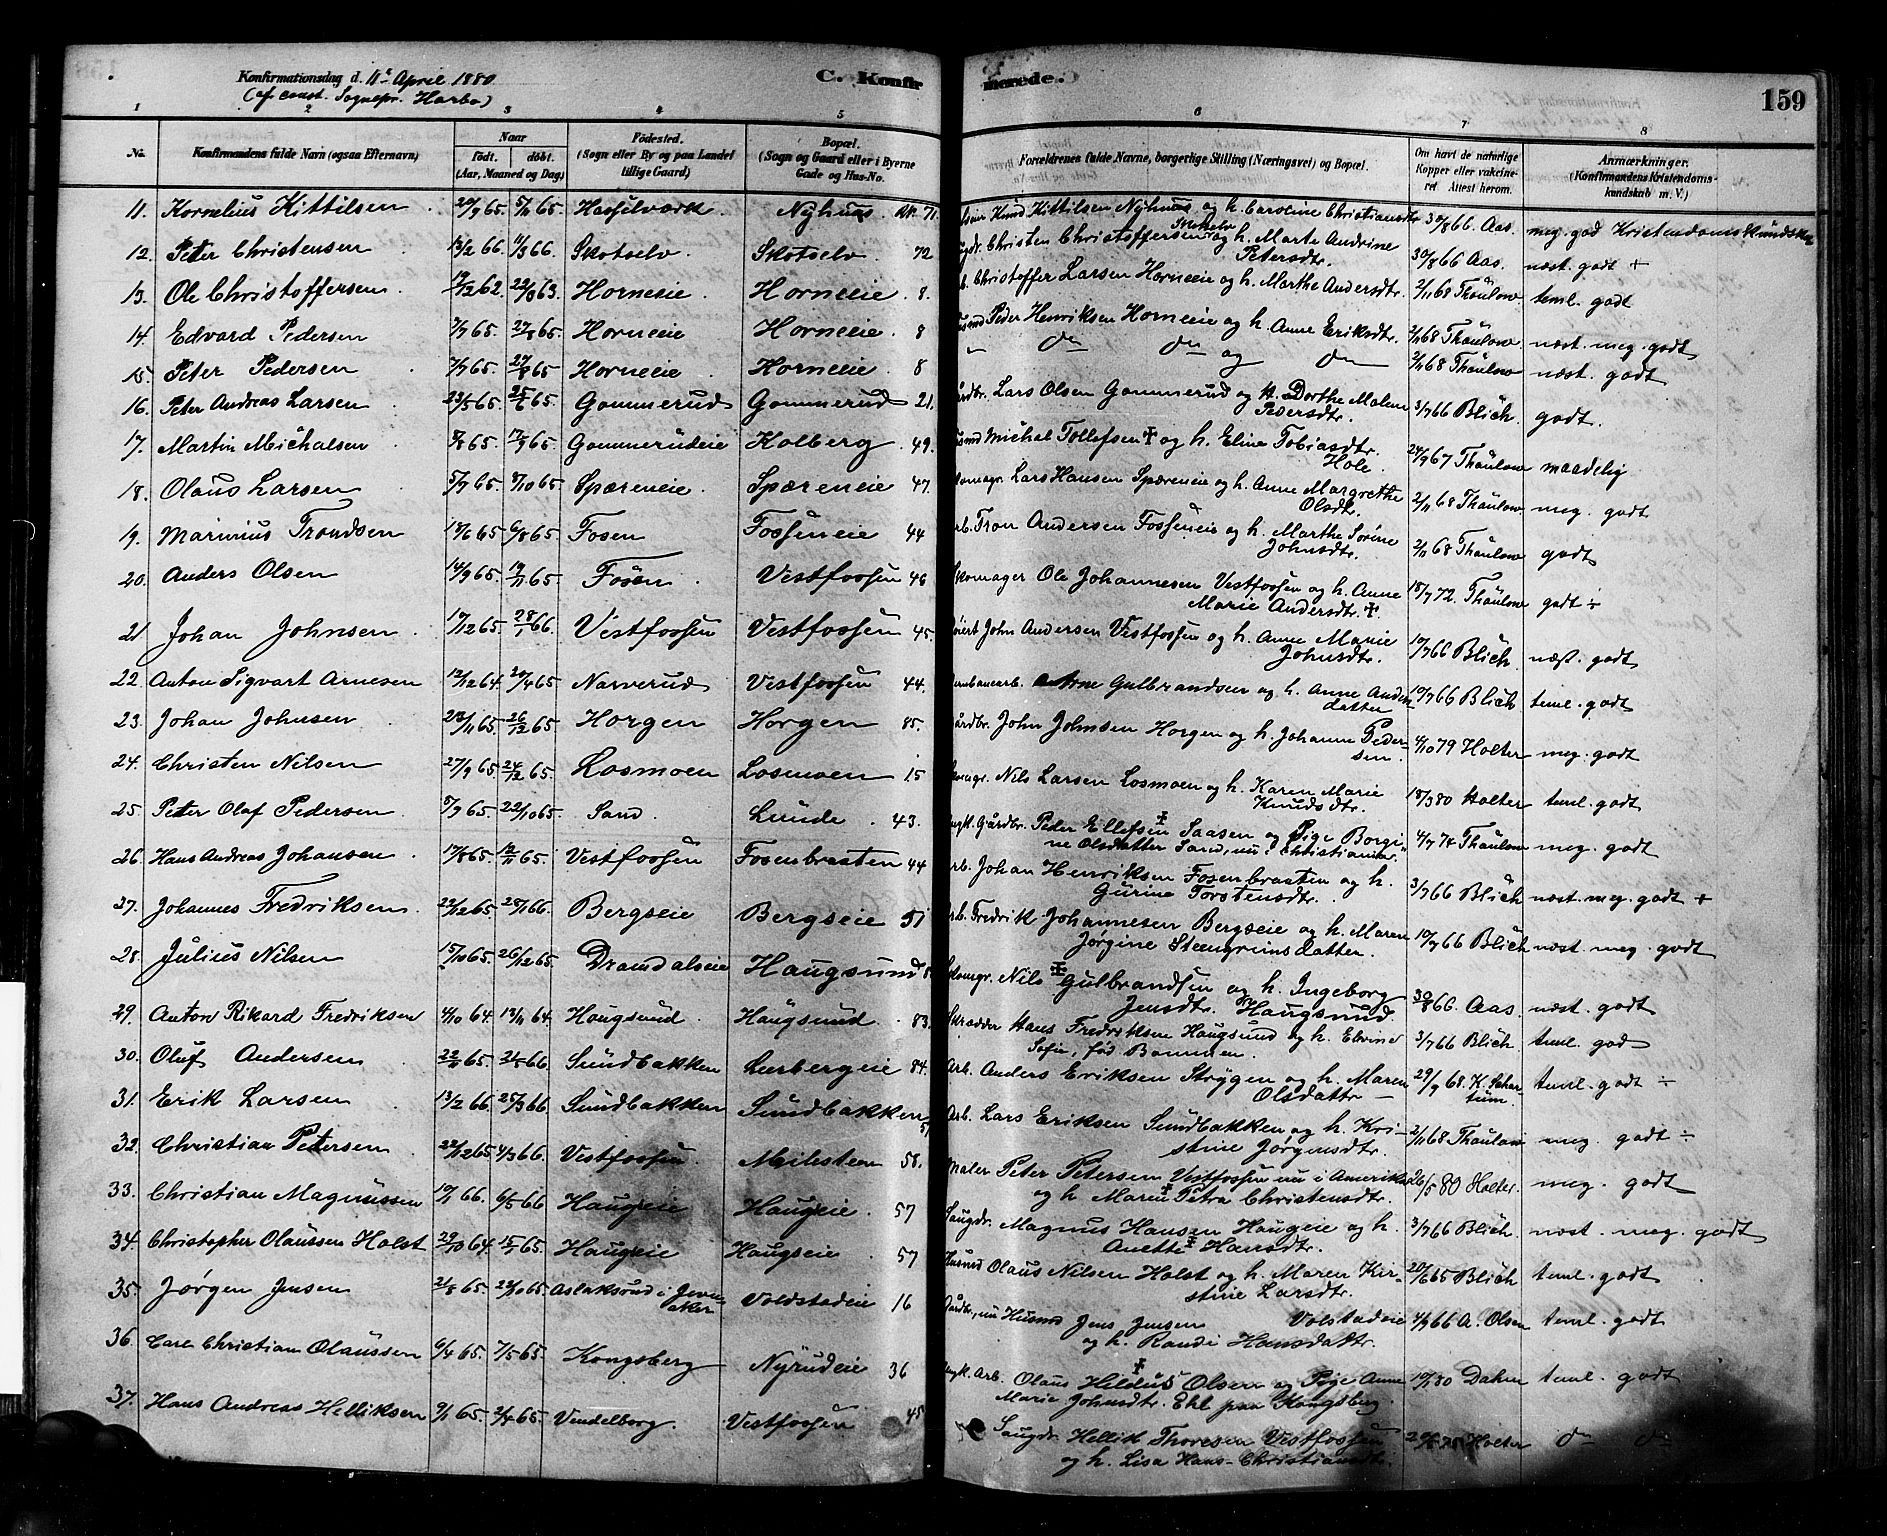 Konfirmationsdag d. 11te April 1880
(af const. Sognepr. Harbo)
C. Konfirmerede.
159
1 2 3 4 5 6 7 8
No.
Konfirmandens fulde Navn (ogsaa Efternavn)
Naar
födt. döbt.
(Aar, Maaned og Dag)
Födested.
(Sogn eller By og paa Landet tillige Gaard)
Bopæl.
(Sogn og Gaard eller i Byerne Gade og Hus-No.
Forældrenes fulde Navne, borgerlige Stilling (Næringsvei) og Bopæl.
Om havt de naturlige Kopper eller vakcineret. Attest herom.
Anmærkninger.
(Konfirmandens Kristendomskundskab m. V.)
11. Kornelius Kittilsen 20/9 65. 5/11 65. Hasselværk Nyhus 71. Knud Kittilsen Nyhus og h. Caroline Christiansdtr 30/8 66 Aas. meg. god Kristendomskundsk
12. Peter Christensen 13/2 66. 11/3 66. Skotselv Skotselv 72 Christen Christoffersen Skotselv og h. Marte Andrine Petersdtr. 30/8 66 Aas. næst. godt +
13. Ole Christoffersen 19/12 62. 22/3 63. Horneeie. Horneeie 8. Christoffer Larsen Horneeie og h. Marthe Andersdtr. 2/11 68 Thaulow. teml. godt
14. Edvard Pedersen 7/7 65. 27/8 65. Horneeie Horneeie. 8 Peder Henriksen Horneeie og h. Anne Eriksdtr. 2/11 68 Thaulow næst. meg. godt
15. Peter Pedersen 7/7 65. 27/8 65 Horneeie Horneeie 8 " do do og do 2/11 68 Thaulow næst. godt
16. Peter Andreas Larsen 23/5 65. 25/6 65. Gommerud Gommerud 21. Lars Olsen Gommerud og h. Dorthe Malene Pedersdtr. 3/7 66 Blich. godt.
17. Martin Michalsen 65. 17/9 65. Gommerudeie Kolberg 49. Michel Tollefsen ‡ og h. Eline Tobiasdtr. Hole. 24/9 67 Thaulow maadelig
18. Olaus Larsen 5/7 65. 8/10 65. Spæreneie. Spæreneie 47. Lars Hansen Spæreneie og h. Anne Margrethe Olsdtr. 2/11 68 Thaulow meg. godt
19. Marinius Trondsen 18/6 65 6/8 65. Fosen Fosseneie 44 Tron Andersen Fosseneie og h. Marthe Sørine Johnsdtr. 2/11 68 Thaulow godt
20. Anders Olsen 14/9 65. 19/11 65 Fosen. Vestfossen 46 Skomager Ole Johannesen Vestfossen og h. Anne Marie Andersdtr. ‡ 18/7 72. Thaulow godt ÷
21 Johan Johnsen. 17/12 65. 28/1 66. Vestfossen Vestfossen 45. John Andersen Vestfossen og h. Anne Marie Johnsdtr. 10/7 66 Blich næst. godt
22. Anton Sigvart Arnesen 12/12 64. 20/4 65 Narverud Vestfossen 44. Arne Gulbrandsen og h. Anne Andersdatter 10/7 66 Blich teml. godt
23. Johan Johnsen 23/11 65. 26/12 65 Horgen Horgen 85. John Johnsen Horgen og h. Johanne Pedersen. 4/10 79 Holter meg. godt
24. Christen Nilsen 27/9 65. 24/12 65. Losmoen Losmoen 15 Nils Larsen Losmoen og h. Karen Marie Knudsdtr. 18/3 80 Holter teml. godt
25. Peter Olaf Pedersen 5/9 65. 22/10 65. Sand. Lunde. 43. Gårdbr. Peder Ellefsen ‡ Saasen og Pige Borgine Olsdatter Sand, nu i Christiania. 4/7 74 Thaulow meg. godt
26. Hans Andreas Johansen. 17/8 65. 12/11 65. Vestfossen Fosenbraaten 44 Johan Henriksen Fosenbraaten og h. Gurine Torstensdtr. 3/7 66 Blich næst. meg. godt +
27. Johannes Fredriksen. 22/12 65. 25/1 66. Bergseie Bergseie 51 Fredrik Johannesen Bergseie og h. Maren Jørgine Steengrimsdatter. 10/7 66 Blich næst. meg. godt
28. Julius Nilsen 15/10 65. 26/12 65. Dramdalseie Haugsund 8 Skomgr. Nils ‡ Gulbrandsen og h. Ingeborg Jensdtr. Haugsund. 30/8 66. Aas. næst. godt
29. Anton Rikard Fredriksen 4/10 64. 13/11 64. Hougsund. Haugsund. 83. Skrædder Hans Fredriksen Haugsund og h. Elvine Sofie, fød Bommen. 3/7 66 Blich teml. god
30. Oluf Andersen 65. 66. Sundbakken Lerbergeie 84. Arb. Anders Eriksen Strygen og h. Maren Olsdatter — 29/9 68. K. Schartum. teml. godt ÷
31. Erik Larsen 13/2 66. 25/3 66 Sundbakken Sundbakken 51 Arb. Lars Eriksen Sundbakken og h. Kristine Jørgensdtr. 2/11 68 Thaulow meg. godt ÷
32. Christian Petersen 22/12 65 4/3 66. Vestfossen. Meilsteen 58. Maler Peter Petersen Vestfossen nu i Amerika og h. Maren ‡ Petra Christensdtr. 26/5 80 Holter. meg. godt
33. Christian Magnussen 10/1 66. 6/5 66 Haugseie Haugseie. 57 Magnus Hansen Haugeie og h. Anette ‡ Hansdtr. 3/7 66 Blich. næst. meg. godt
34. Christopher Olaussen Holst 29/10 64. 15/1 65. Haugseie Haugseie. 57 Husmd Olaus Nilsen Holst og h. Maren Kirstine Larsdtr. 20/6 65 Blich teml. godt
35. Jørgen Jensen 21/8 65. 22/10 65. Aslaksrud i Jevnaker Voldstadeie 16 Gårdbr., nu Husmd Jens Jensen Volstadeie og h. Randi Hansdattr. 4/9 66 A. Olsen teml. godt
36. Carl Christian Olaussen 6/4 65. 7/5 65. Kongsberg Nyrudeie 36 Arb. Olaus Hildus ‡ Olsen og Pige Anne Marie Johnsdtr. Ehl paa Kongsberg. 80 Dahm teml. godt
37. Hans Andreas Helliksen 9/1 65. 2/4 65. Vendelborg. Vestfossen 45 Saugdr. Hellik Thoresen Vestfossen og h. Lisa Hans-Christiansdtr. 75 Holter do do